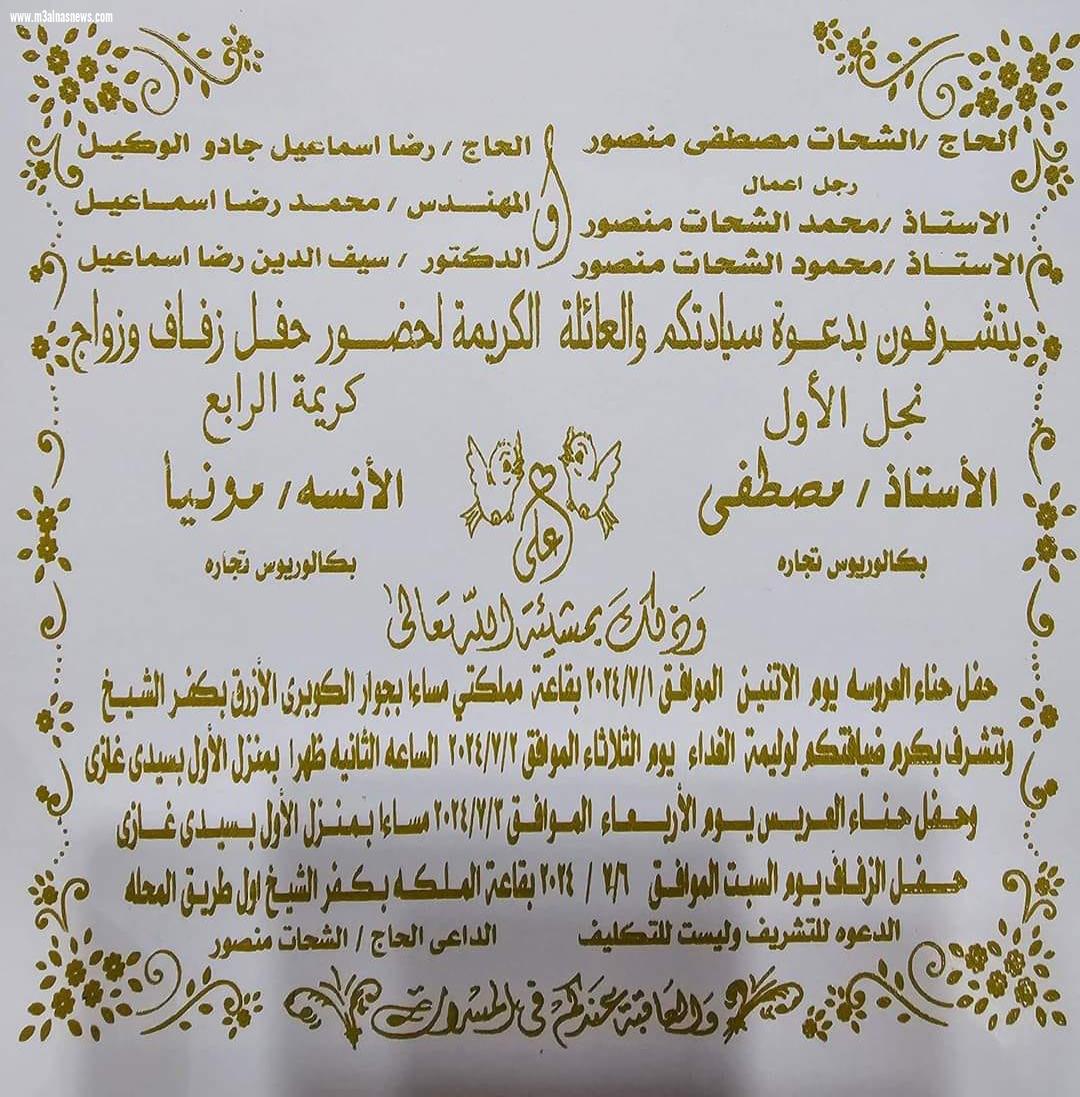 www.m3alnasnews.com
الحاج /الشحات مصطفى منصور
رجل اعمال
الاستاذ /محمد الشحات منصور
الاستاذ /محمود الشحات منصور
و
الحاج / رضا اسماعيل جادو الوكيل
المهندس / محمد رضا اسماعيل
الدكتور / سيف الدين رضا اسماعيل
يتشرفون بدعوة سيادتكم والعائلة الكريمة لحضور حفل زفاف وزواج
نجل الأول
كريمة الرابع
الأستاذ / مصطفى
على
الأنسه / مونيا
بكالوريوس تجاره
بكالوريوس تجاره
وَذلكَ بمشيئة الله تعالى
حفل حناء العروسه يوم الاثنين الموافق ٢٠٢٤/٧/١ بقاعة مملكتي مساءا بجوار الكوبرى الأزرق بكفر الشيخ
ونتشرف بكرم ضيافتكم لوليمة الغداء يوم الثلاثاء الموافق ٢٠٢٤/٧/٢ الساعه الثانيه ظهرا بمنزل الأول بسيدى غازى
وحفل حناء العريس يوم الأربعاء الموافق ٢٠٢٤/٧/٣ مساءا بمنزل الأول بسيدى غازى
حفل الزفاف يوم السبت الموافق ٧/٦ / ٢٠٢٤ بقاعة الملكه بكفر الشيخ اول طريق المحله
الدعوه للتشريف وليست للتكليف
الداعى الحاج / الشحات منصور
وَالعَاقبة عندكم فى المسرات